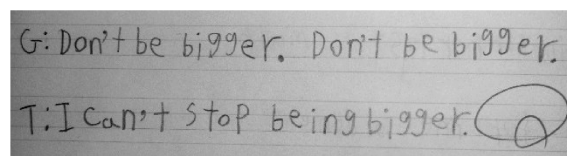 G: Don't be bigger. Don't be bigger.
T: I can't stop being bigger.